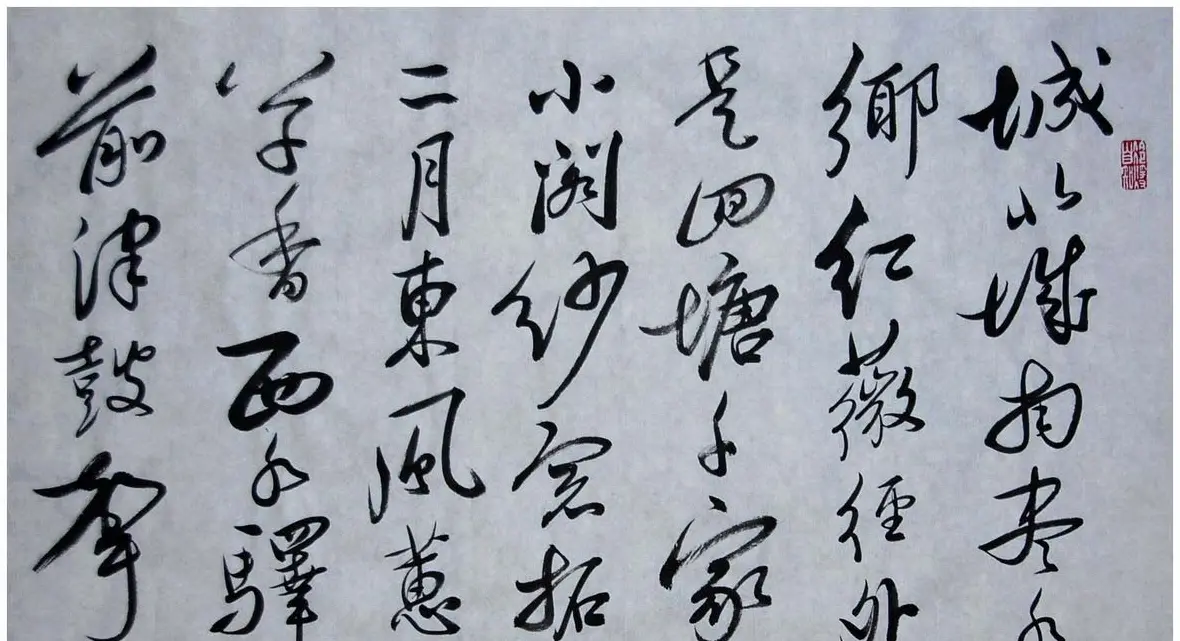 城北城南盡水
鄉紅薇徑外
是回塘千家
小閣紗窗拓
二月東風蕙
草香西水驛
前津鼓聲